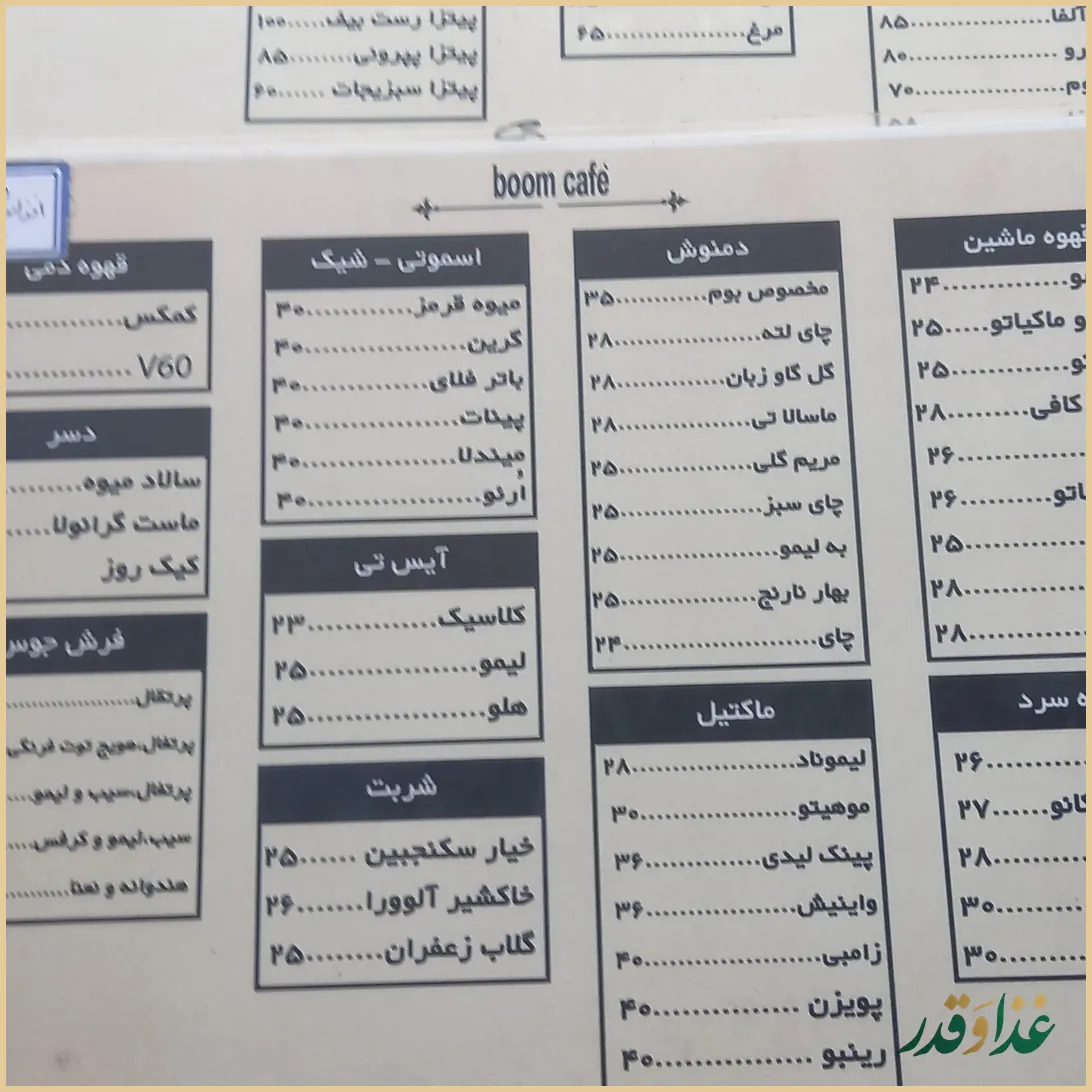 پیتزا رست بیف.....۱۰۰
پیتزا پپرونی........۸۵
پیتزا سبزیجات ......۶۰
مرغ...................۶۵
آلفا..................۸۵
۸۰
۷۰
boom cafè
قهوه ماشین
۲۴
و ماکیاتو.....۲۵
۲۵
کافی.........۲۸
۲۶
۲۶
۲۵
۲۸
۲۸
سرد
۲۶
۲۷
۲۸
۳۰
۳۰
دمنوش
مخصوص بوم...........۳۵
چای لته..................۲۸
گل گاو زبان.............۲۸
ماسالا تی................۲۸
مریم گلی................۲۵
چای سبز.................۲۵
به لیمو...................۲۵
بهار نارنج................۲۵
چای.......................۲۴
ماکتیل
لیموناد...................۲۸
موهیتو...................۳۰
پینک لیدی.............۳۶
واینیش..................۳۶
زامبی.....................۴۰
پویزن ...................۴۰
رینبو ....................۴۰
اسموتی - شیک
میوه قرمز..............۴۰
گرین.....................۴۰
باتر فلای...............۴۰
پینات...................۴۰
میندلا...................۴۰
اُرئو.......................۴۰
آیس تی
کلاسیک................۲۳
لیمو.....................۲۵
هلو.......................۲۵
شربت
خیار سکنجبین ......۲۵
خاکشیر آلوورا........۲۶
گلاب زعفران.........۲۵
قهوه دمی
کمکس..............
V60 ..............
دسر
سالاد میوه.........
ماست گرانولا.....
کیک روز
فرش جوس
پرتقال..................
پرتقال،هویج توت فرنگی
پرتقال،سیب و لیمو....
سیب،لیمو و کرفس.....
هندوانه و نعنا..........
غذا و قدر